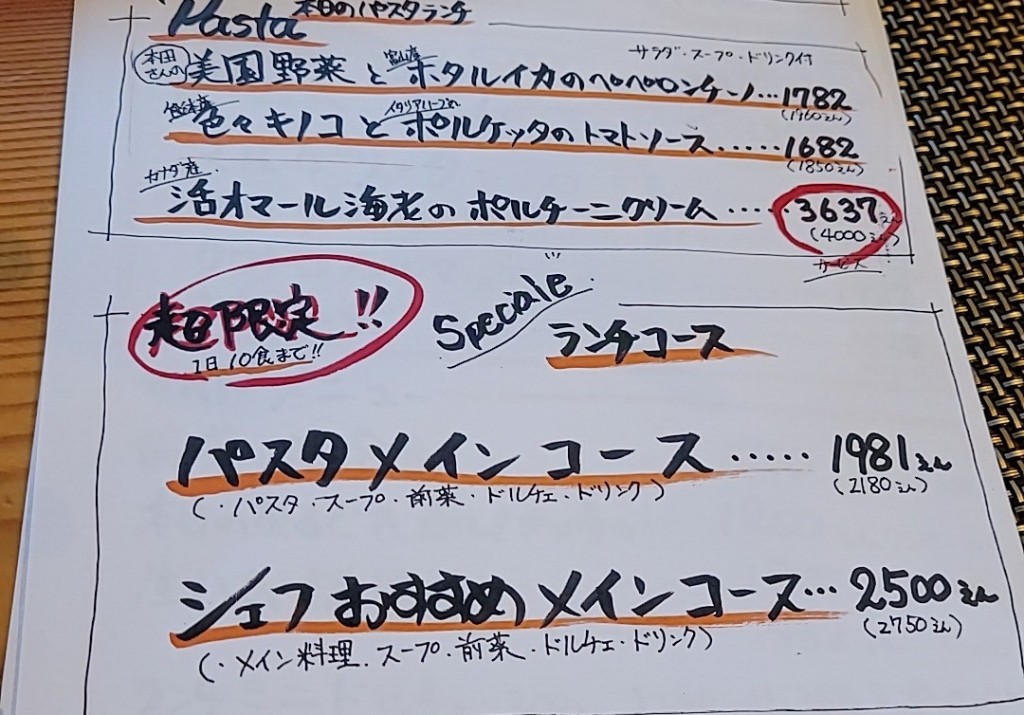 Pasta 本日のパスタランチ
サラダ・スープ・ドリンク付
本田さんの 美国野菜と富山産ホタルイカのペペロンチーノ…1782
(1960えん)
色々キノコとイタリアハーブ ポルケッタのトマトソース.....1682
(1850えん)
カナダ産
活オマール海老のポルチーニクリーム.....3637えん
(4000えん)
サービス
超限定!!
1日10食まで!!
Speciale
ランチコース
パスタメインコース.....1981えん
(・パスタ・スープ・前菜・ドルチェ・ドリンク)
(2180えん)
シェフおすすめメインコース…2500えん
(・メイン料理・スープ・前菜・ドルチェ・ドリンク)
(2750えん)